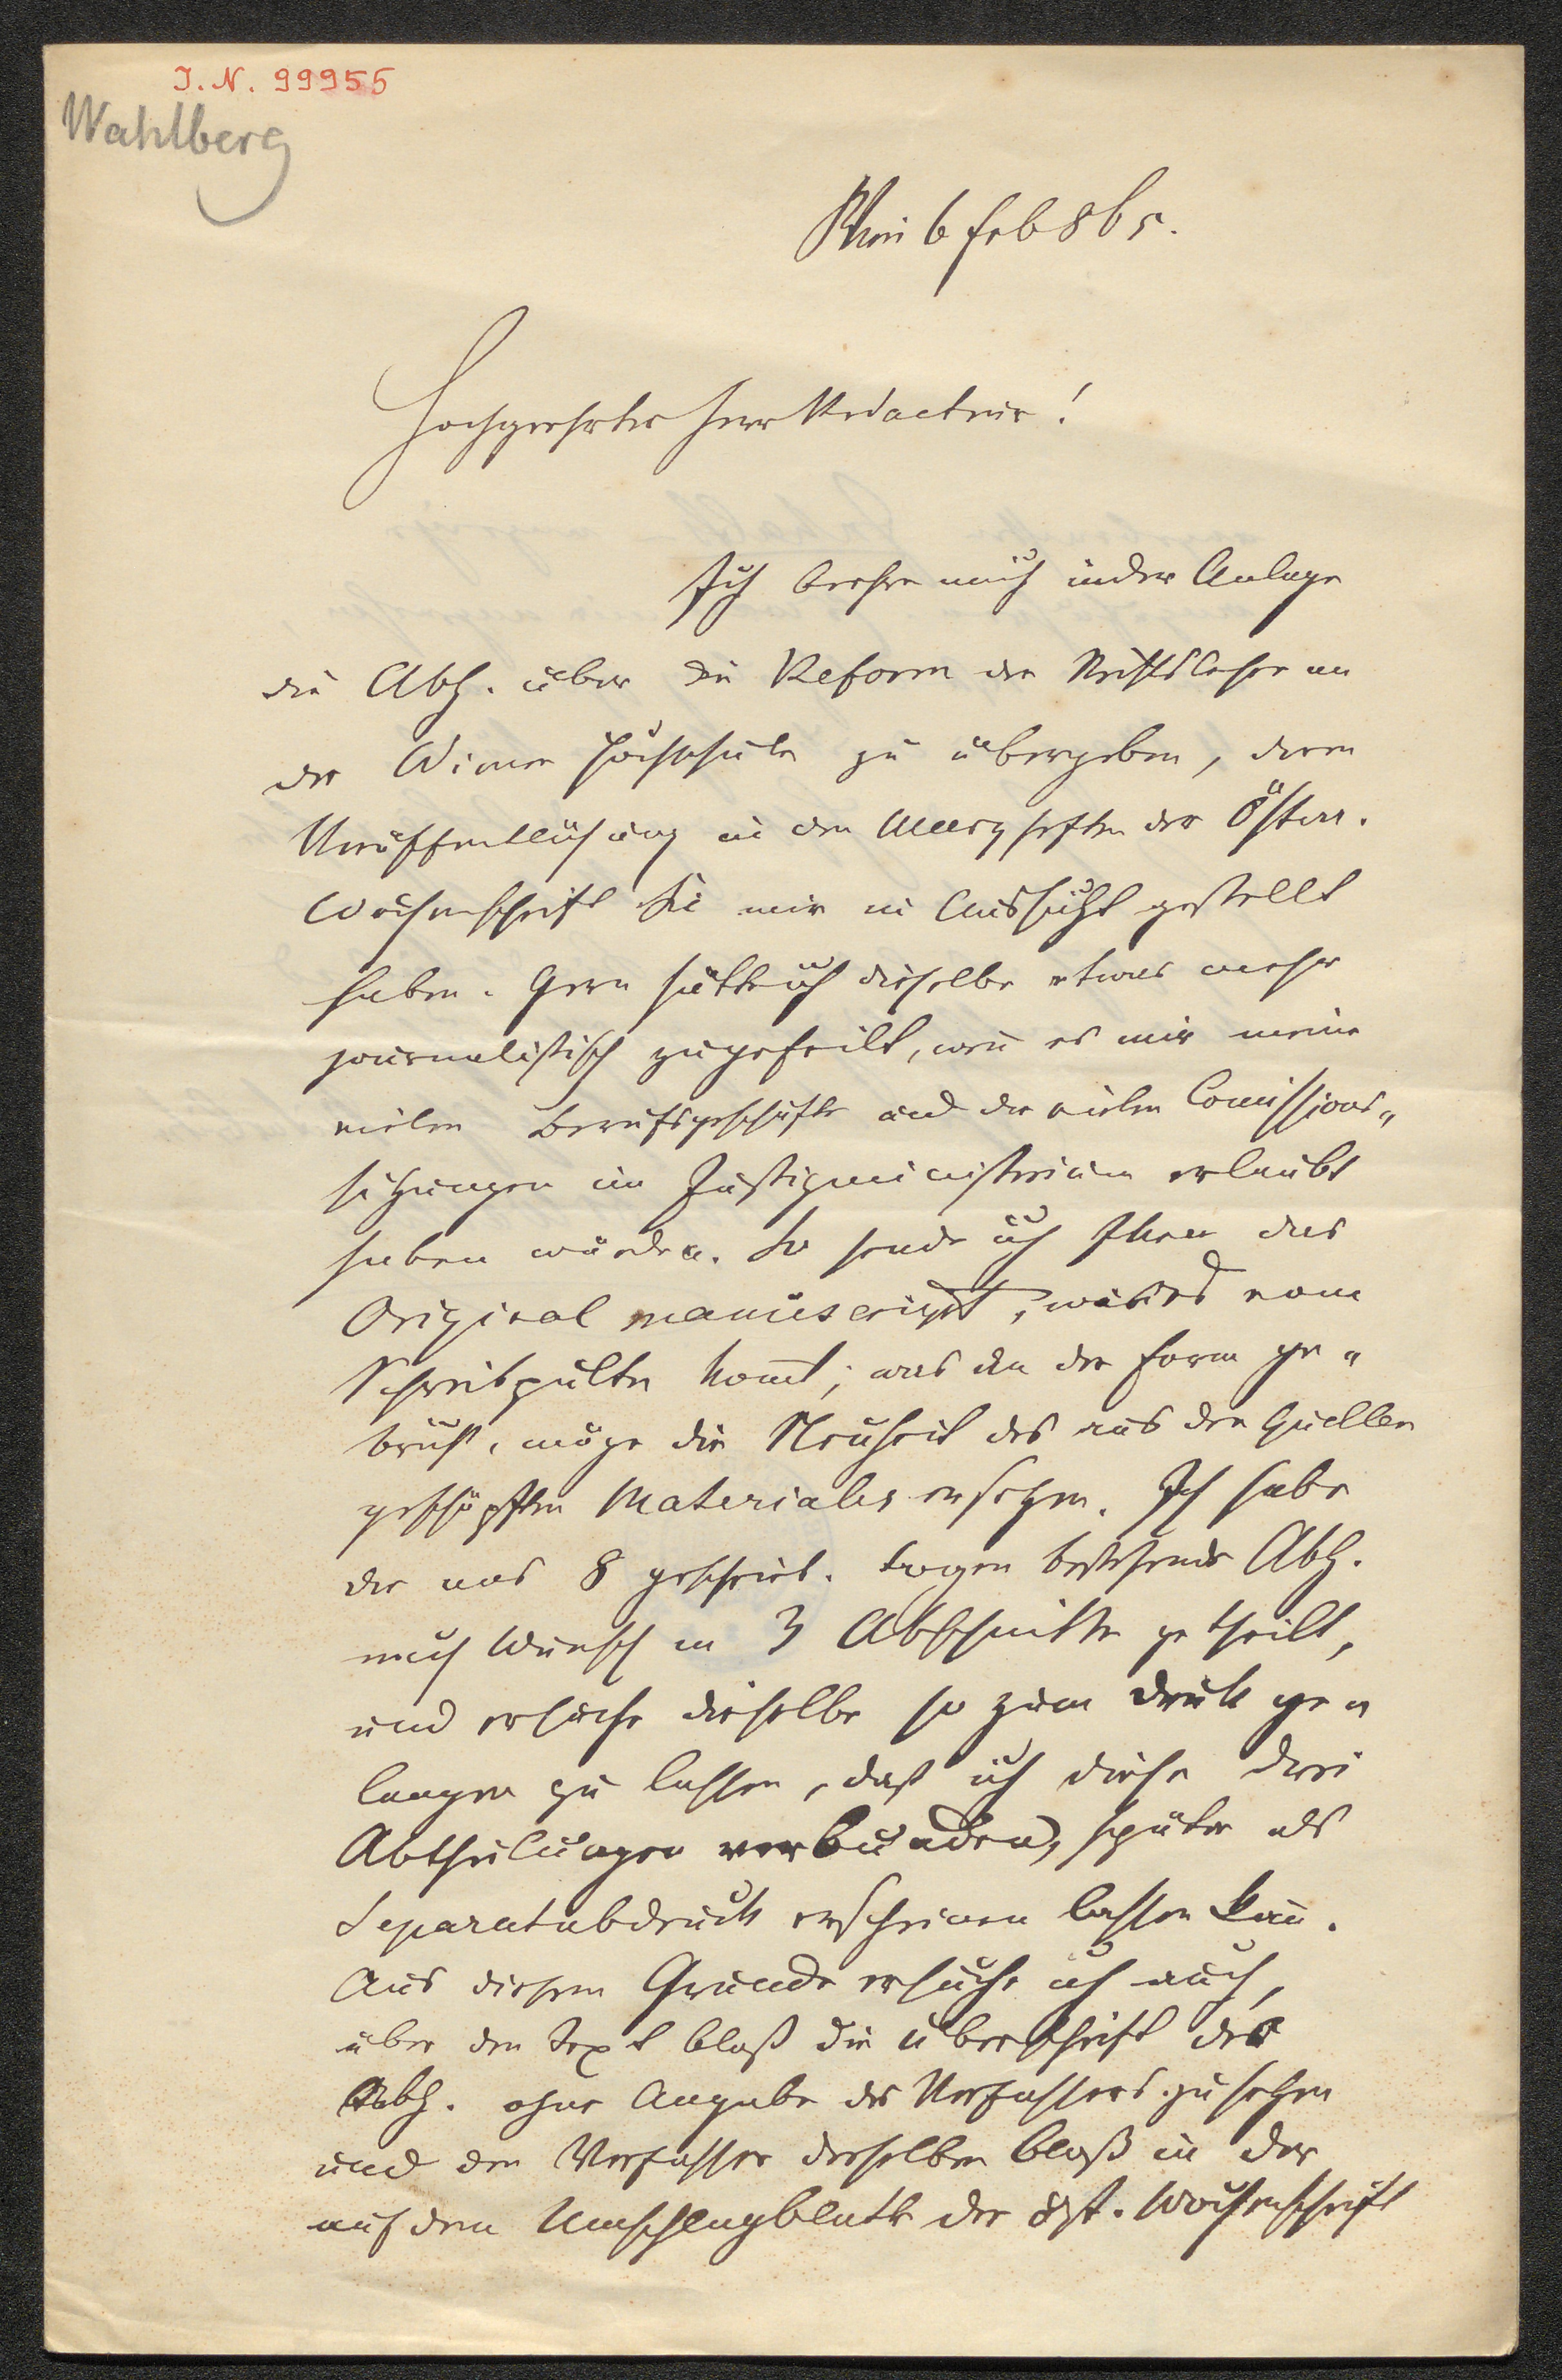 I. N. 99955
Wahlberg
Wien 6 Feb 865.
Hochgeehrter Herr Redacteur!
Ich beehre mich in der Anlage
die Abh. über die Reform der Rechtslehre an
der Wiener Hochschule zu übergeben, deren
Veröffentlichung in den Märzheften der Österr.
Wochenschrift Sie mir in Aussicht gestellt
haben. Gern hätte ich dieselbe etwas mehr
journalistisch zugefeilt, wen̅ es mir meine
vielen Berufsgeschäfte und die vielen Com̅issions„
sitzungen im Justizministerium erlaubt
haben würden. So sende ich Ihnen das
Original manuscript, wie es vom
Schreibpulte kom̅t; was an der Form ge„
bricht, möge die Neuheit des aus den Quellen
geschöpften Materiales ersetzen. Ich habe
die aus 8 geschrieb. Bogen bestehende Abh.
nach Wunsch in 3 Abschnitte getheilt,
und ersuche dieselbe so zum Druck ge„
langen zu lassen, daß ich diese drei
Abtheilungen verbunden, später als
Separatabdruck erscheinen lassen kan̅.
Aus diesem Grunde ersuche ich auch,
über den Text bloß die Überschrift der
Abh. ohne Angabe des Verfassers zu setzen
und den Verfasser derselben bloß in der
auf dem Umschlagblatte der öst. Wochenschrift